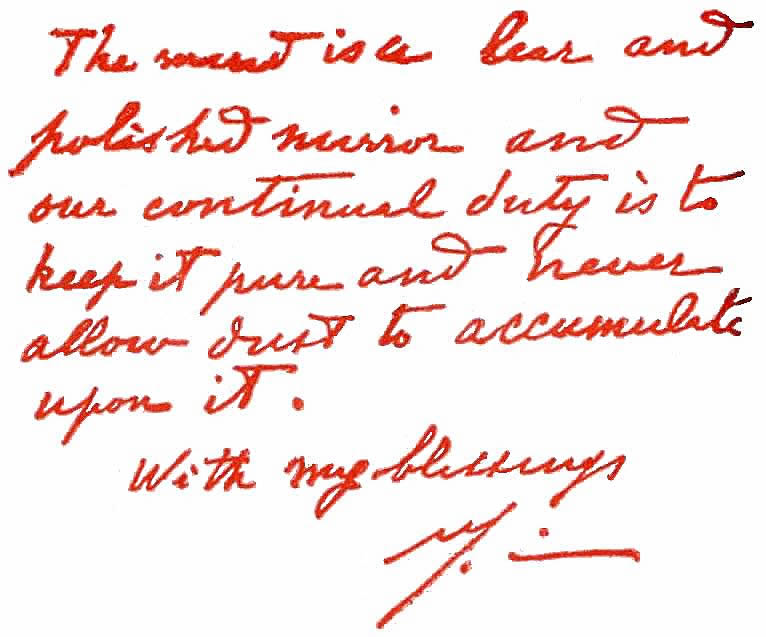 The is a clear and
polished mirror and
our continual duty is to
keep it pure and never
allow dust to accumulate
upon it.
With my blessings